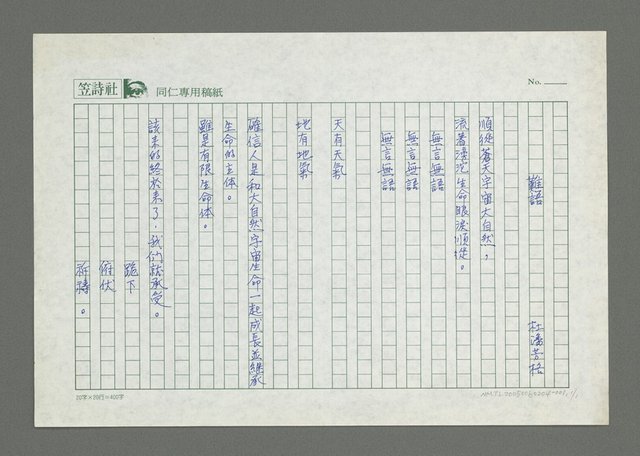 笠詩社 同仁專用稿紙
No.
難語
杜潘芳格
順從蒼天宇宙大自然，
流著滂沱生命眼淚順從。
無言無語
無言無語
無言無語
天有天氣
地有地氣
確信人是和大自然宇宙生命一起成長並繼承
生命的主体。
雖是有限生命体。
該来的終於来了，我們就承受。
跪下
俯伏
祈禱。
20字×20行=400字